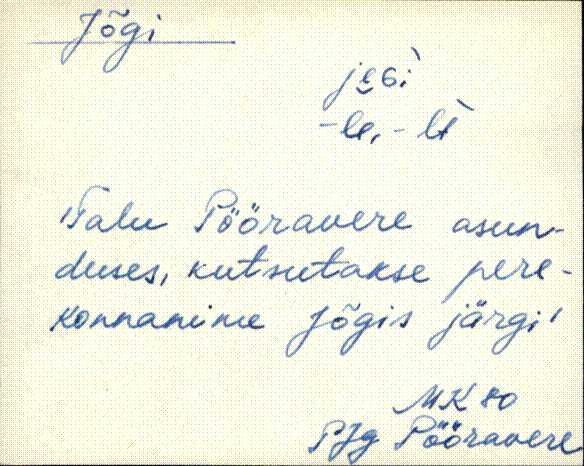 Jõgi
je̮Gì
-le̮, -lt̀
'Talu Pööravere asun-
duses, kutsutakse pere-
konnanime Jõgis järgi'
MK 80
PJg Pööravere